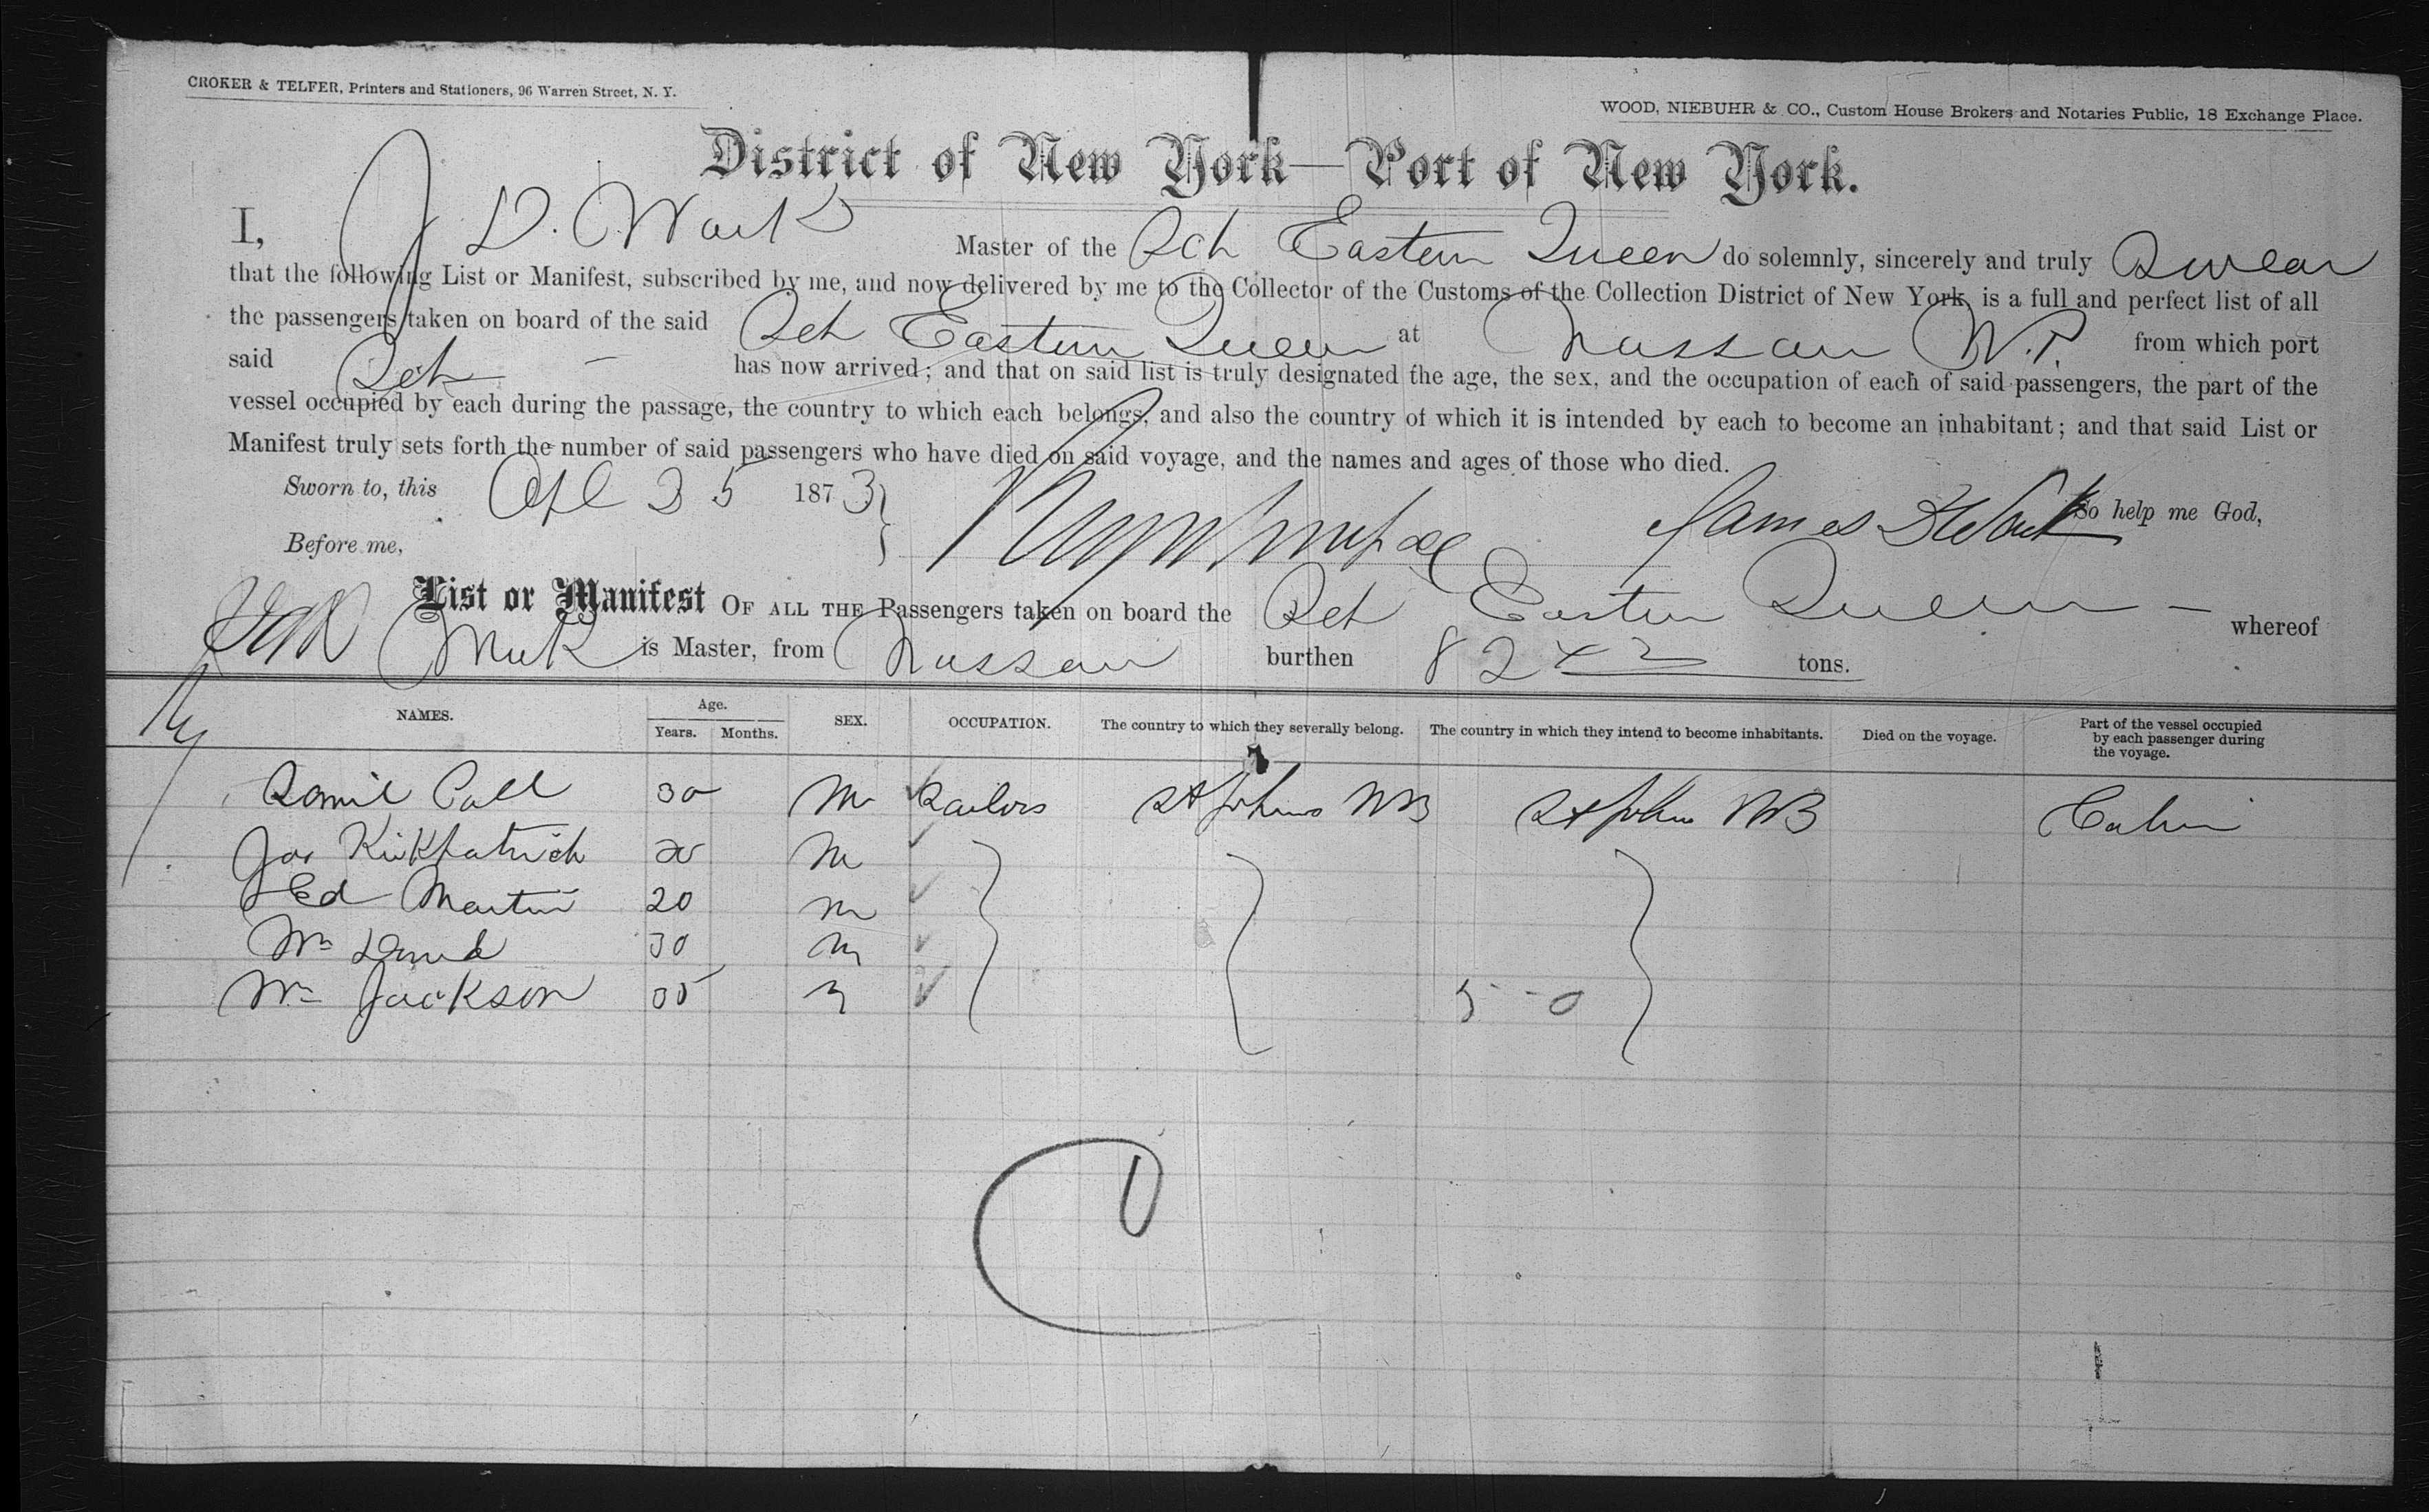 CROKER & TELFER, Printers and Stationers, 96 Warren Street, N. Y.
WOOD, NIEBUHR & CO., Custom House Brokers and Notaries Public, 18 Exchange Place.
District of New York—Port of New York.
I, J D. Master of the Sch Eastern Queen do solemnly, sincerely and truly Swear
that the following List or Manifest, subscribed by me, and now delivered by me to the Collector of the Customs of the Collection District of New York, is a full and perfect list of all
the passengers taken on board of the said Sch Eastern Queen at Nassau N.P. from which port
said Sch — has now arrived; and that on said list is truly designated the age, the sex, and the occupation of each of said passengers, the part of the
vessel occupied by each during the passage, the country to which each belongs, and also the country of which it is intended by each to become an inhabitant; and that said List or
Manifest truly sets forth the number of said passengers who have died on said voyage, and the names and ages of those who died.
Sworn to, this Apl 25 1873 } James So help me God,
Before me,
List or Manifest OF ALL THE Passengers taken on board the Sch Eastern Queen — whereof
is Master, from Nassau burthen 82 tons.
NAMES. Age. Years. Months. SEX. OCCUPATION. The country to which they severally belong. The country in which they intend to become inhabitants. Died on the voyage. Part of the vessel occupied by each passenger during the voyage.
30 M Sailors St Johns NB St John NB Cabin
Jas Kirkpatrick M
Ed Martin 20 M
Wm 30 M
Wm Jackson M 5 - 0